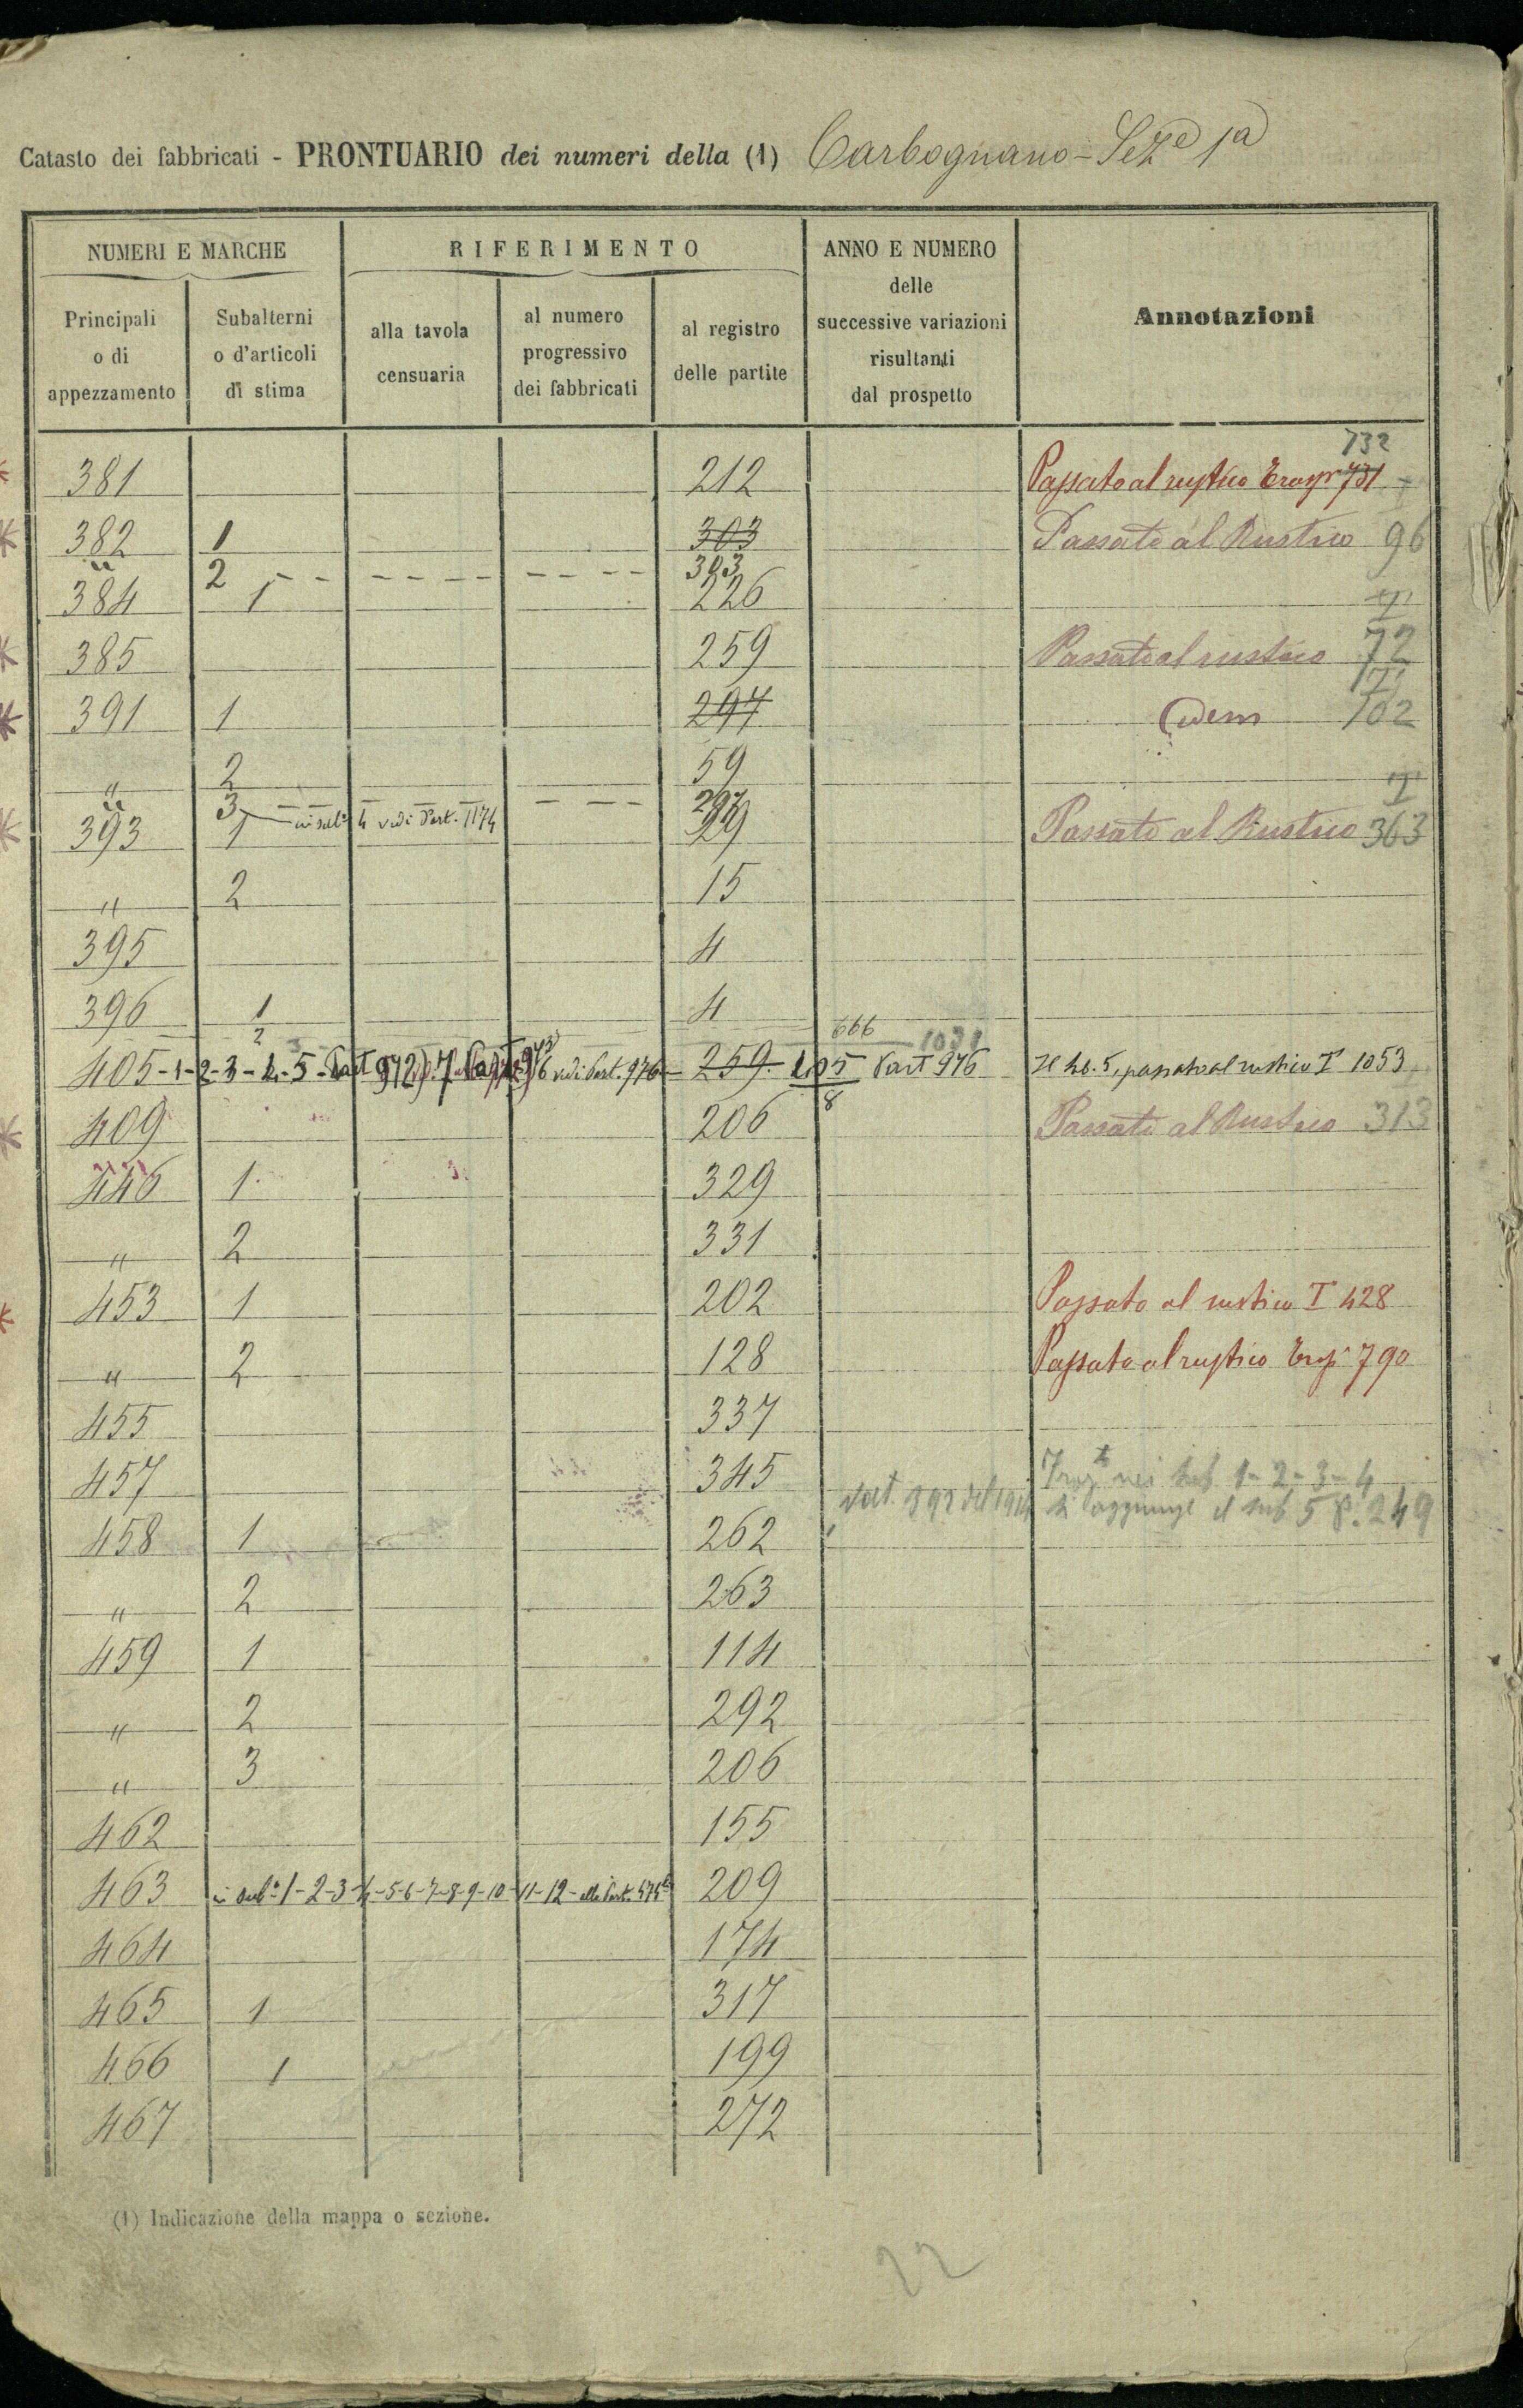 Catasto dei fabbricati - PRONTUARIO dei numeri della (1) Carbognano - Seze 1a
NUMERI E MARCHE
RIFERIMENTO
ANNO E NUMERO delle successive variazioni risultanti dal prospetto
Annotazioni
Principali o di appezzamento
Subalterni o d'articoli di stima
alla tavola censuaria
al numero progressivo dei fabbricati
al registro delle partite
732
381 212 Passato al rustico 731
382 1 303 Passato al Rustico 96
" 2 - - - - - - - - - - 303
384 1 226
385 259 Passato al rustico 72
391 1 297 Idem 102
" 2 59
" 3 in sub. 4 vedi Part. 1174 297
393 1 29 Passato al Rustico 363
" 2 15
395 4
396 1 4
2 666 1031
405 - 1 - 2 - 3 - 4 - 5 - Part 972 vedi Part. 976 259 405 Part 976 Il sub. 5, passato al rustico T 1053
8
409 206 Passato al Rustico 313
446 1 329
" 2 331
453 1 202 Passato al rustico T 428
" 2 128 Passato al rustico 790
455 337
457 345 nei sub 1 - 2 - 3 - 4
si aggiunge il sub 5 P. 249
458 1 262
" 2 263
459 1 114
" 2 292
" 3 206
462 155
463 in sub. 1 - 2 - 3 - 4 - 5 - 6 - 7 - 8 - 9 - 10 - 11 - 12 - alla Part. 209
464 174
465 1 317
466 1 199
467 272
(1) Indicazione della mappa o sezione.
22